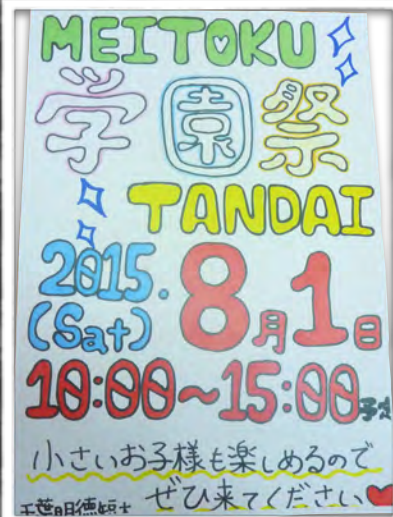 MEITOKU
学園祭
TANDAI
2015.
(Sat)
8月1日
10:00～15:00予定
小さいお子様も楽しめるので
ぜひ来てください
千葉明徳短大